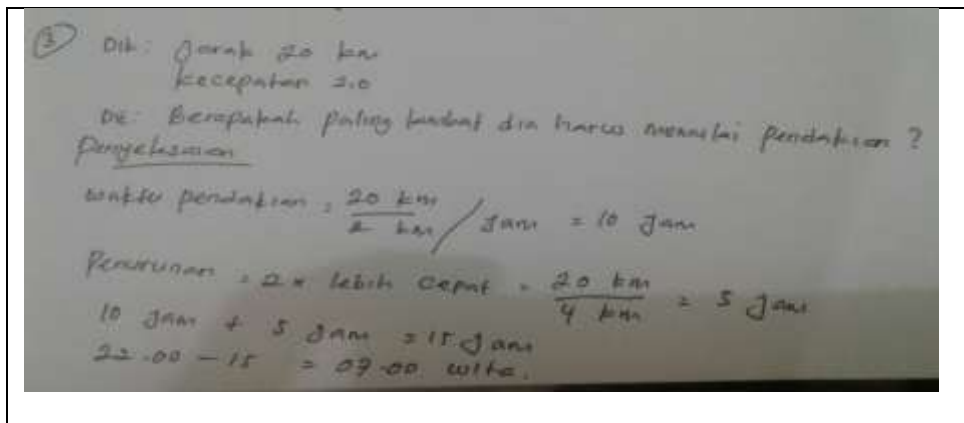 ③ Dik : Jarak 20 km
kecepatan 2.0
Dit : Berapakah paling lambat dia harus memulai pendakian ?
Penyelesaian
waktu pendakian = 20 km / 2 km / Jam = 10 Jam
Penurunan = 2 x lebih cepat = 20 km / 4 km = 5 Jam
10 Jam + 5 Jam = 15 Jam
22.00 - 15 = 07.00 wita.